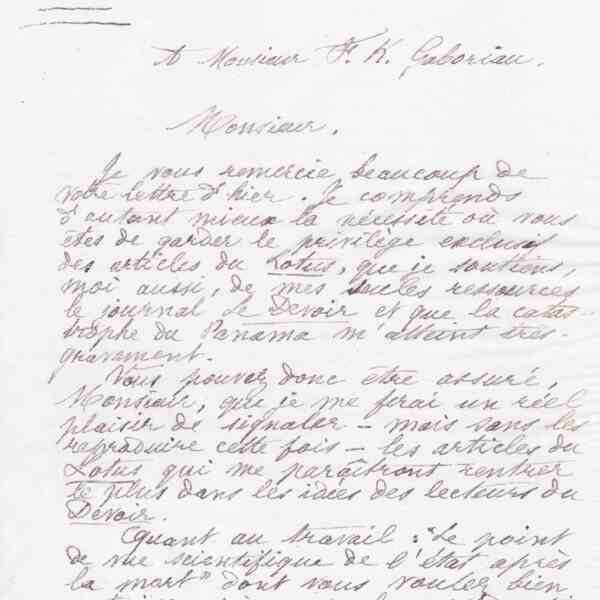 A Monsieur F. K. Gaboriau.
Monsieur,
Je vous remercie beaucoup de
votre lettre d'hier. Je comprends
d'autant mieux la nécessité où vous
êtes de garder le privilège exclusif
des articles du Lotus, que je soutiens,
moi aussi, de mes seules ressources
le journal Le Devoir et que la catas-
trophe du Panama m'atteint très-
gravement.
Vous pouvez donc être assuré,
Monsieur, que je me ferai un réel
plaisir de signaler - mais sans les
reproduire cette fois - les articles du
Lotus qui me paraîtront rentrer
le plus dans les idées des lecteurs du
Devoir.
Quant au travail : "Le point
de vue scientifique de l'état après
la mort" dont vous voulez bien